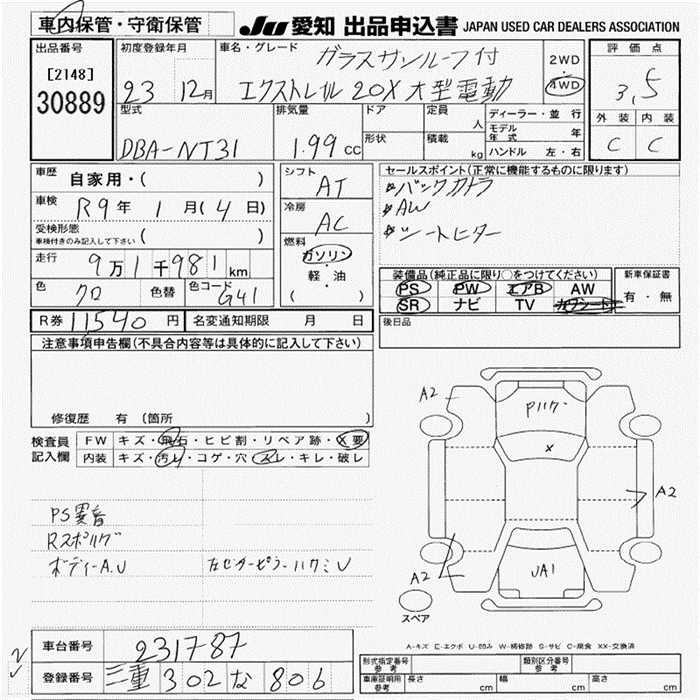 車内保管・守衛保管
JU 愛知 出品申込書 JAPAN USED CAR DEALERS ASSOCIATION
出品番号
[2148]
30889
初度登録年月
23 12月
車名・グレード
ガラスサンルーフ付
エクストレイル 20X 大型電動
2WD
・
4WD
評価点
3,5
外装 内装
C C
型式
DBA-NT31
排気量
1.99 cc
ドア
形状
定員 人
積載 kg
ディーラー・並行
モデル年式 年
ハンドル 左・右
車歴 自家用・( )
車検 R9年 1月(4日)
受検形態
車検付きのみ記入して下さい ( )
走行 9万1千981 km
色 クロ 色替 色コード G41
シフト AT
冷房 AC
燃料
ガソリン
・
軽・油
( )
セールスポイント(正常に機能するものに限ります)
*バックカメラ
*AW
*シートヒター
装備品(純正品に限り○をつけてください)
PS PW エアB AW
SR ナビ TV
新車保証書
有・無
後日品
R券 11540 円 名変通知期限 月 日
注意事項申告欄(不具合内容等は具体的に記入して下さい)
修復歴 有(箇所 )
検査員記入欄
FW キズ・飛石・ヒビ割・リペア跡・X要
内装 キズ・汚レ・コゲ・穴・スレ・キレ・破レ
PS異音
Rスポハゲ
ボディーA.U
左センターピラーハクミU
A2
Pハゲ
X
A2
A2
UA1
スペア
A-キズ E-エクボ U-凹み W-補修跡 S-サビ C-腐食 XX-交換済
車台番号 231787
登録番号 三重 302 な 806
形式指定番号 参考
類別区分番号 参考
車庫証明用 参考 長さ cm 幅 cm 高さ cm